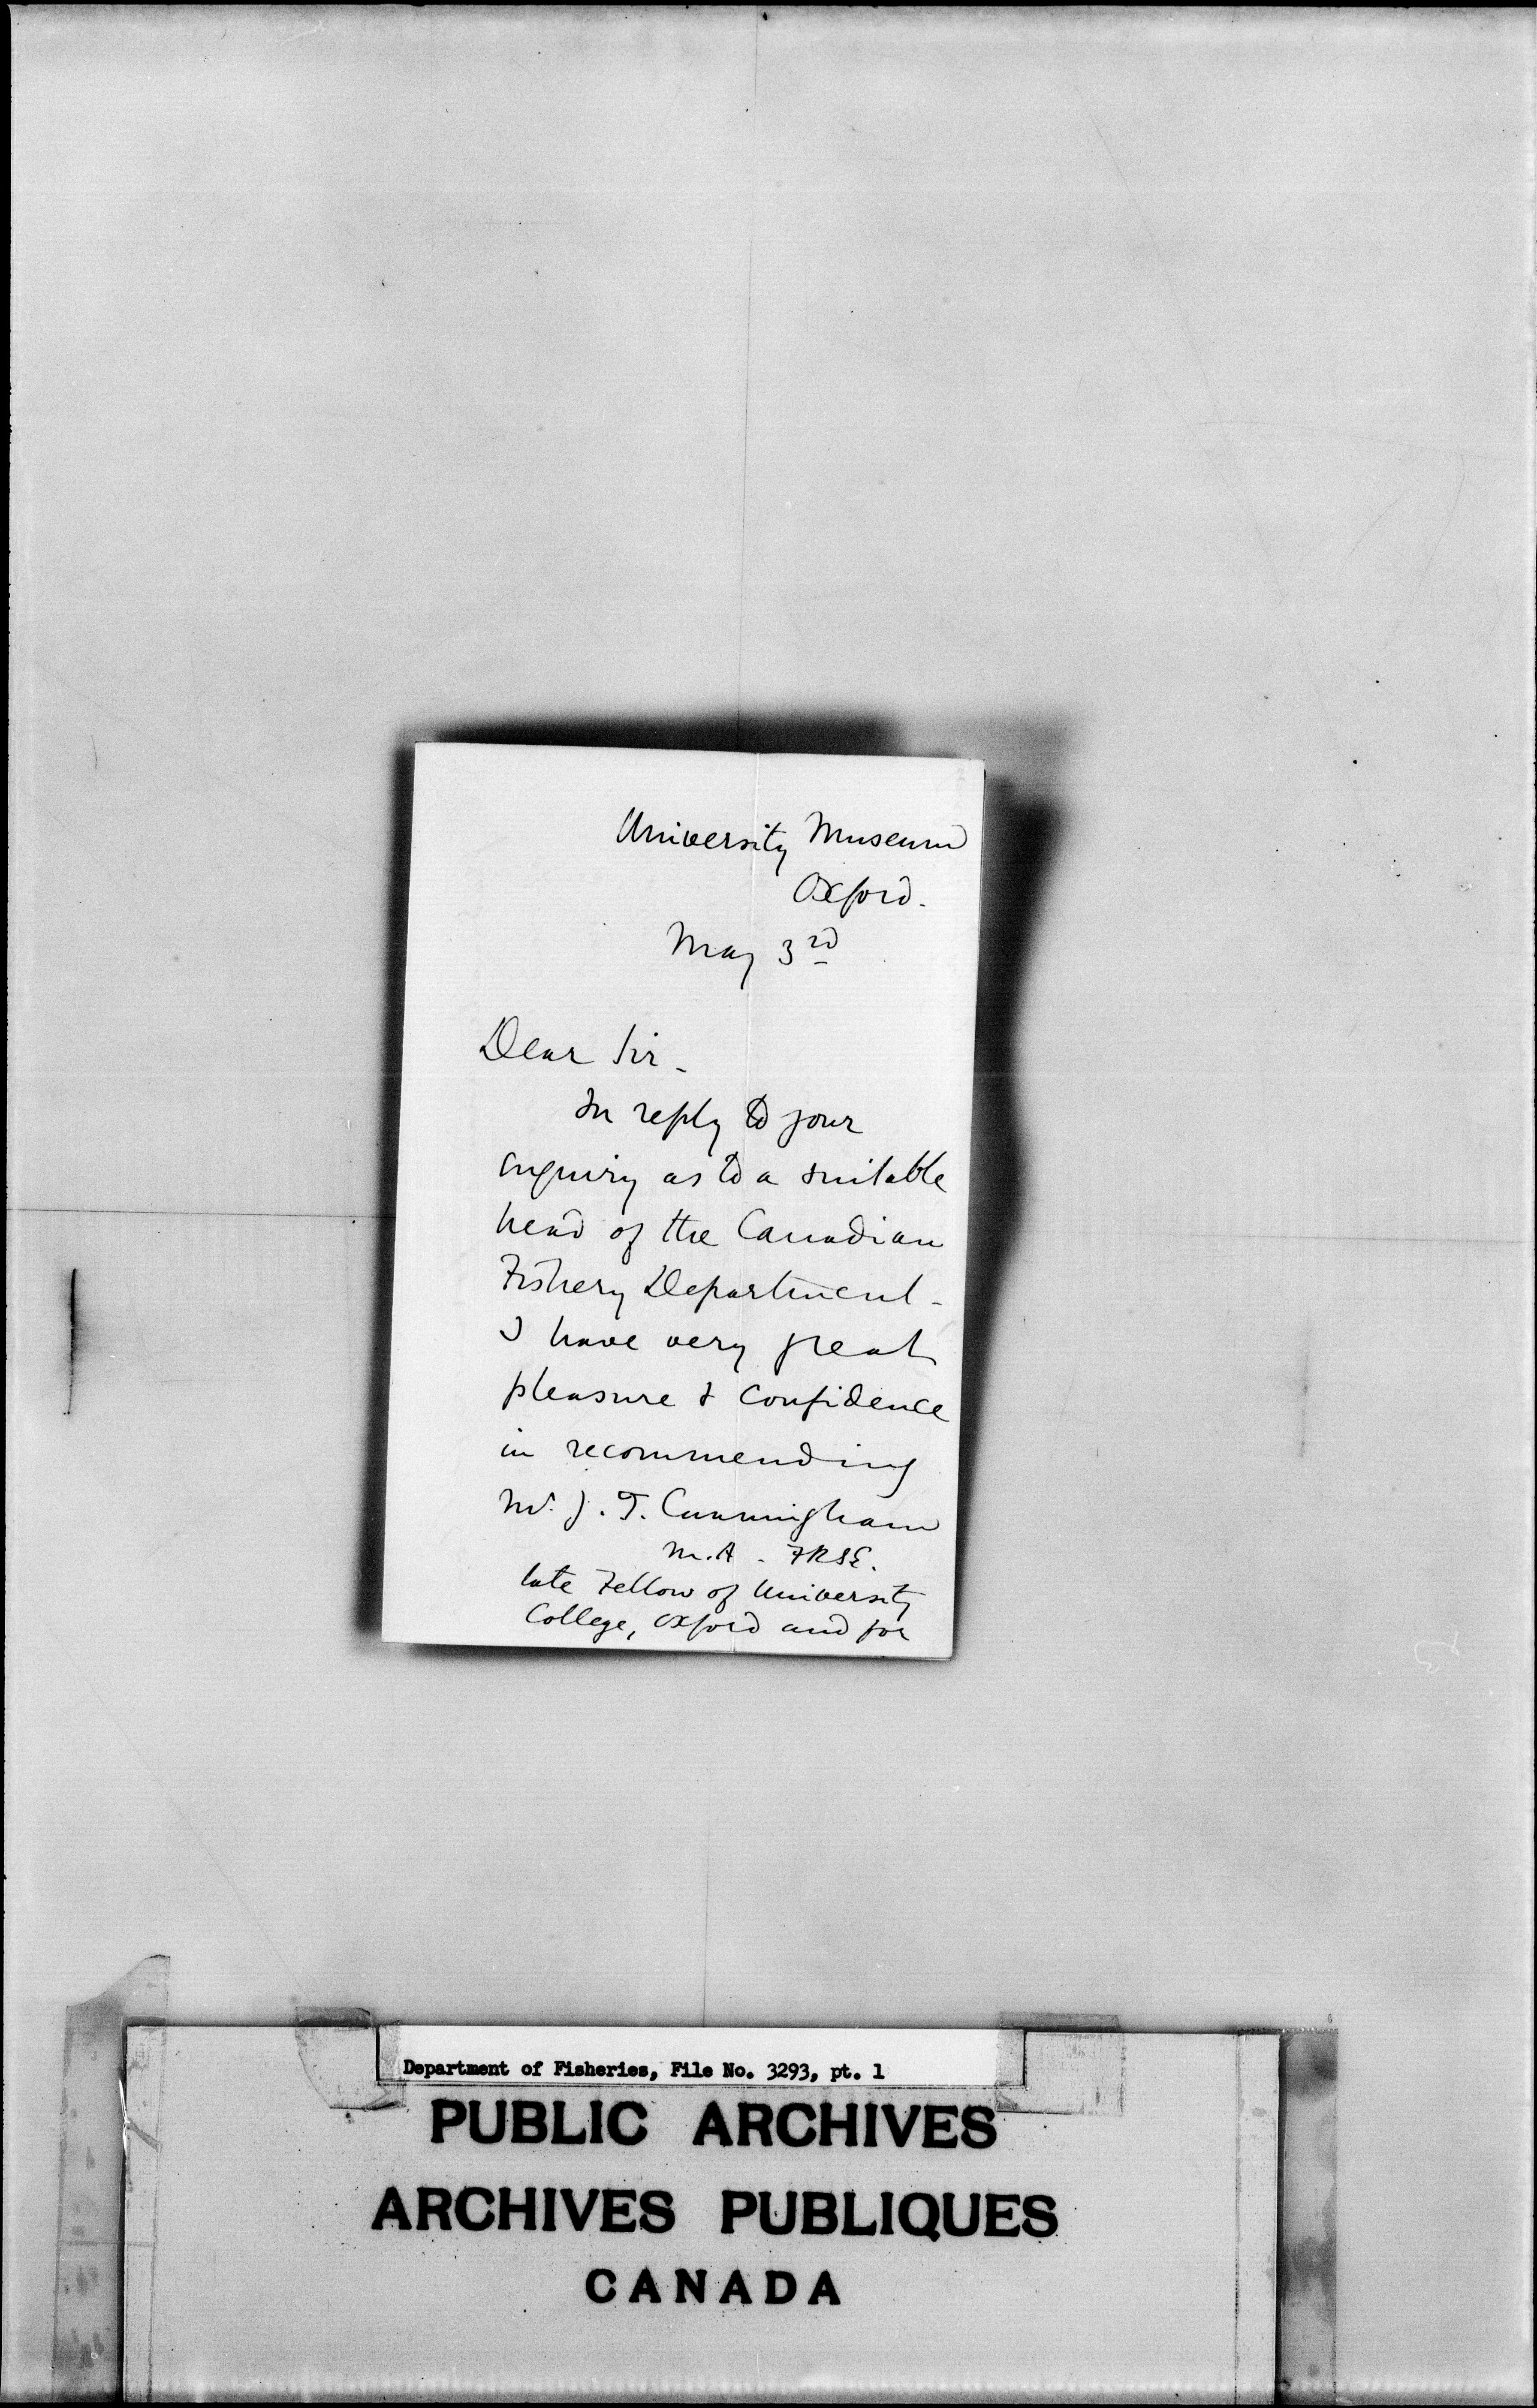 University Museum
Oxford.
May 3rd
Dear Sir -
In reply to your
enquiry as to a suitable
head of the Canadian
Fishery Department -
I have very great
pleasure & confidence
in recommending
Mr. J. T. Cunningham
M.A. FRSE.
late Fellow of University
College, Oxford and for
Department of Fisheries, File No. 3293, pt. 1
PUBLIC ARCHIVES
ARCHIVES PUBLIQUES
CANADA